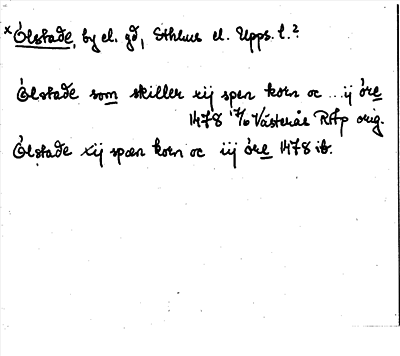 × Ölstade, by el. gd, Sthlms el. Upps. l.?
Ölstade som skiller xij spen korn oc ...ij öre
1478 17/10 Västerås RAp orig.
Ölstade xij spæn korn oc iij öre 1478 ib.